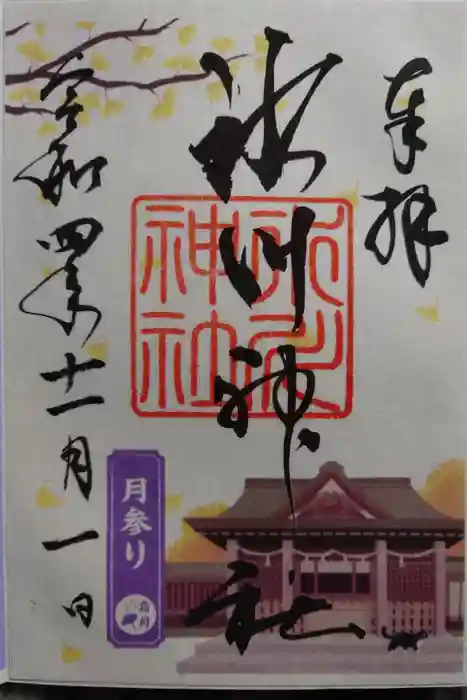 奉拝
氷川神社
氷川
神社
令和四年十一月一日
月参り
霜月